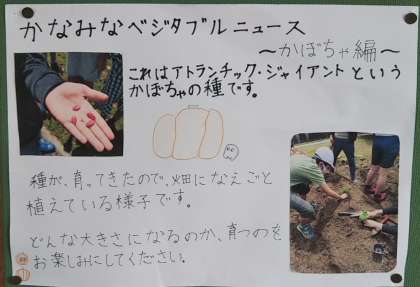 かなみなベジタブルニュース
〜かぼちゃ編〜
これはアトランチック・ジャイアントという
かぼちゃの種です。
種が、育ってきたので、畑になえごと
植えている様子です。
どんな大きさになるのか、育つのを
お楽しみにしてください。